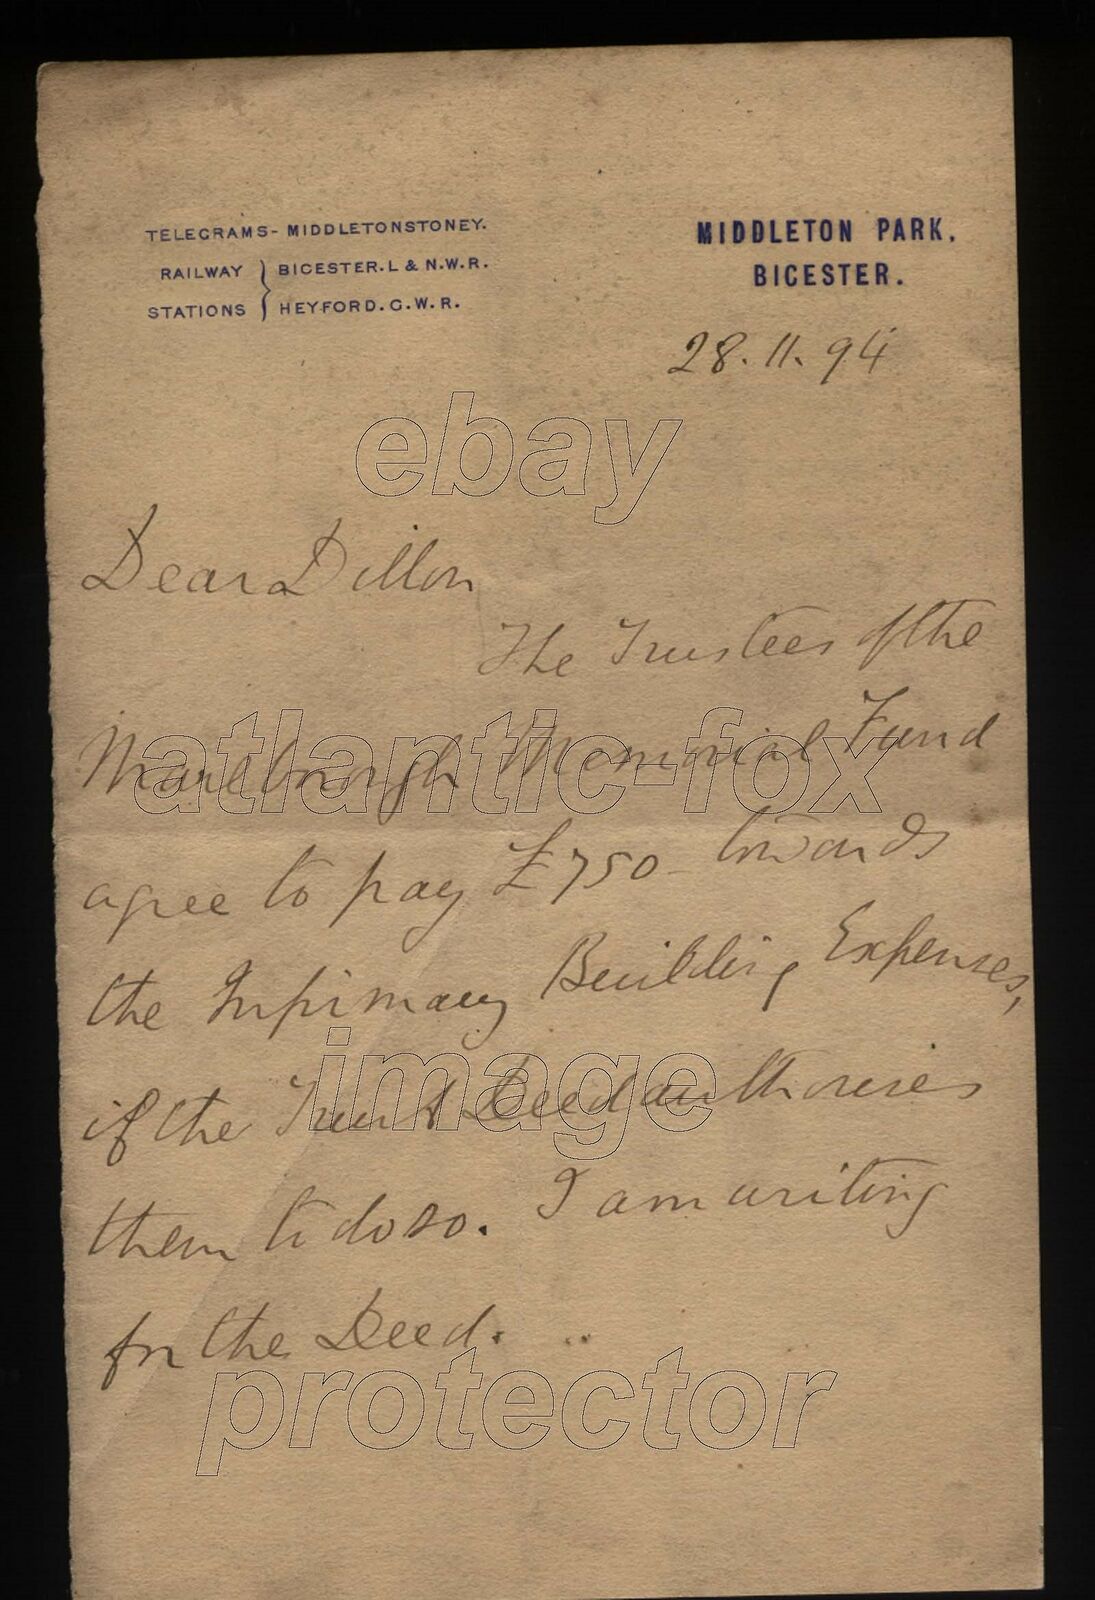 TELEGRAMS- MIDDLETONSTONEY.
RAILWAY STATIONS } BICESTER. L & N.W.R.
HEYFORD. G.W.R.
MIDDLETON PARK,
BICESTER.
28.11.94
ebay
Dear Dillon
The Trustees of the
Marlborough Memorial Fund
atlantic-fox
agree to pay £750 towards
the Infirmary Building Expenses,
image
if the Trust Deed authorises
them to do so. I am writing
for the Deed.
protector